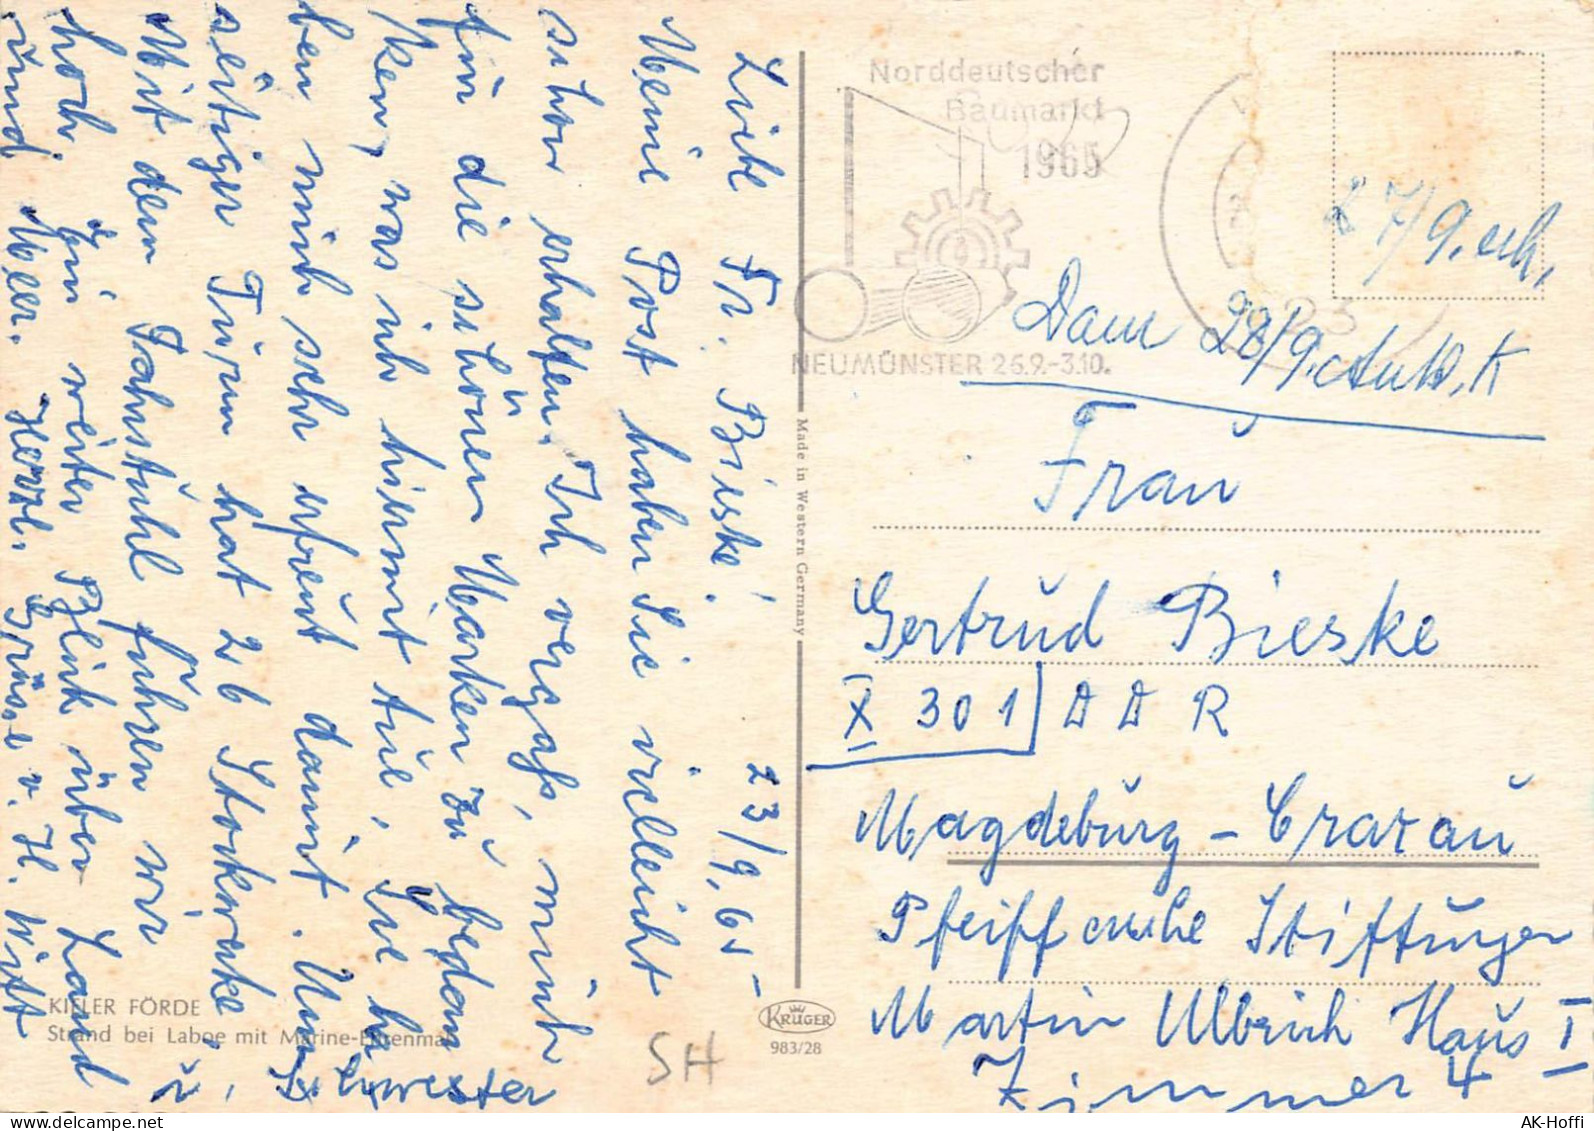 23/9.65
Liebe Fr. Bieske!
Meine Post haben Sie vielleicht
schon erhalten. Ich vergaß, mich
für die schönen Marken zu bedan
ken, was ich hiermit tue. Sie ha
ben mich sehr erfreut damit. Unser
seitiger Turm hat 26 Stockwerke.
Mit dem Fahrstuhl fuhren wir
hoch. Ein weiter Blick über Land
und Meer. Herzl. Grüße v. H. Witt
u. Schwester
KIELER FÖRDE
Strand bei Laboe mit Marine-Ehrenmal
SH
Made in Western Germany
KRÜGER
983/28
Norddeutscher
Baumarkt
1965
NEUMÜNSTER 25.9.-3.10.
23
7/9.
28/9.
Frau
Gertrud Bieske
X 301 DDR
Magdeburg - Cracau
Pfeiffersche Stiftungen
Martin Ulbrich Haus I
Zimmer 4
AK-Hoffi